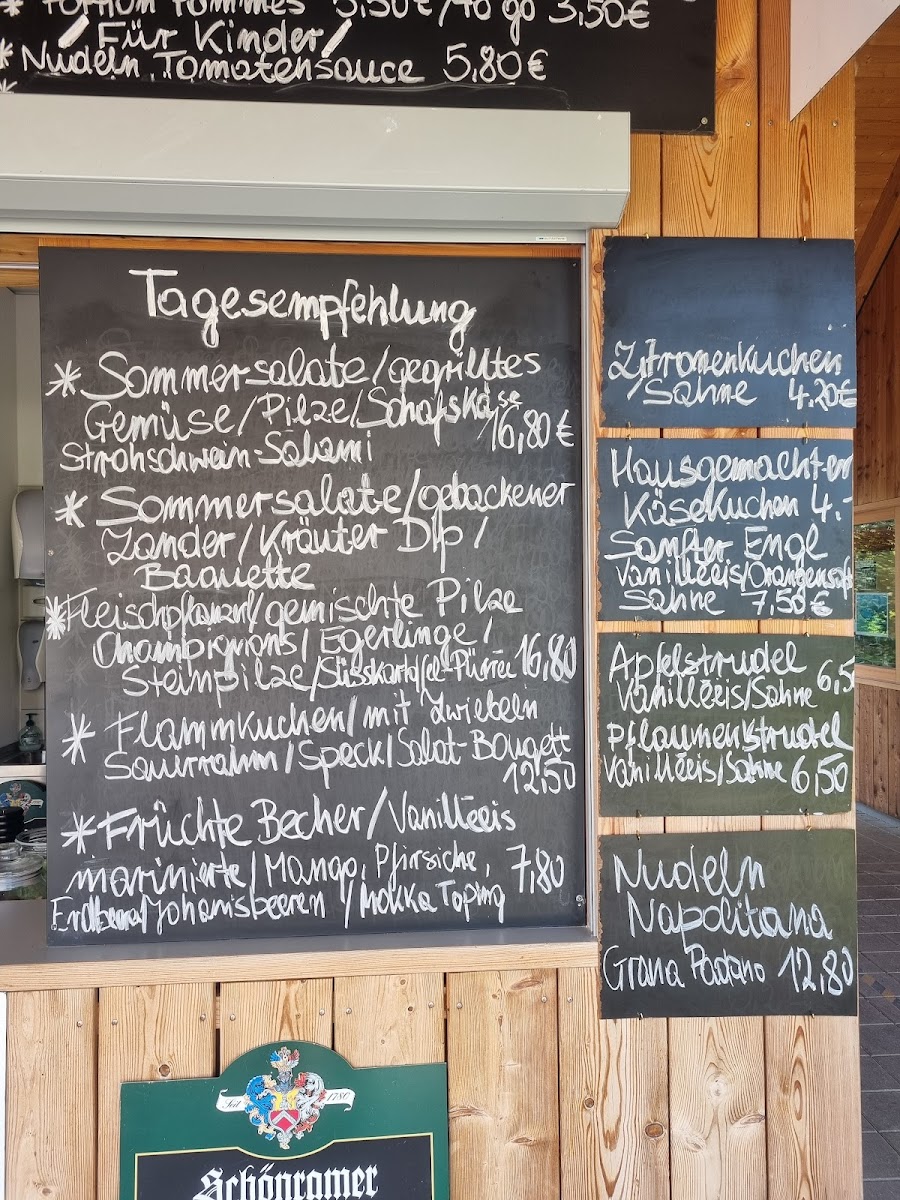 * Portion Pommes 5,50€/To go 3,50€
/Für Kinder/
* Nudeln Tomatensauce 5,80€
Tagesempfehlung
* Sommersalate/gegrilltes
Gemüse/Pilze/Schafskäse
16,80€
Strohschwein-Salami
* Sommersalate/gebackener
Zander/Kräuter Dip/
Baguette
* Fleischpflanzerl/gemischte Pilze
Champignons/Egerlinge/
Steinpilze/Süsskartoffel-Pürree 16,80
* Flammkuchen/mit Zwiebeln
Sauerrahm/Speck/Salat-Bouqett
12,50
* Früchte Becher/Vanilleeis
marinierte/Mango, Pfirsiche, 7,80
Erdbeer/Johannisbeeren/Mokka Toping
Zitronenkuchen
/Sahne 4.20€
Hausgemachter
Käsekuchen 4.-
Sanfter Engel
Vanilleeis/Orangensaft
Sahne 7.50€
Apfelstrudel
Vanilleeis/Sahne 6,5
Pflaumenstrudel
Vanilleeis/Sahne 6,50
Nudeln
Napolitana
Grana Padano 12,80
Seit 1780
Schönramer